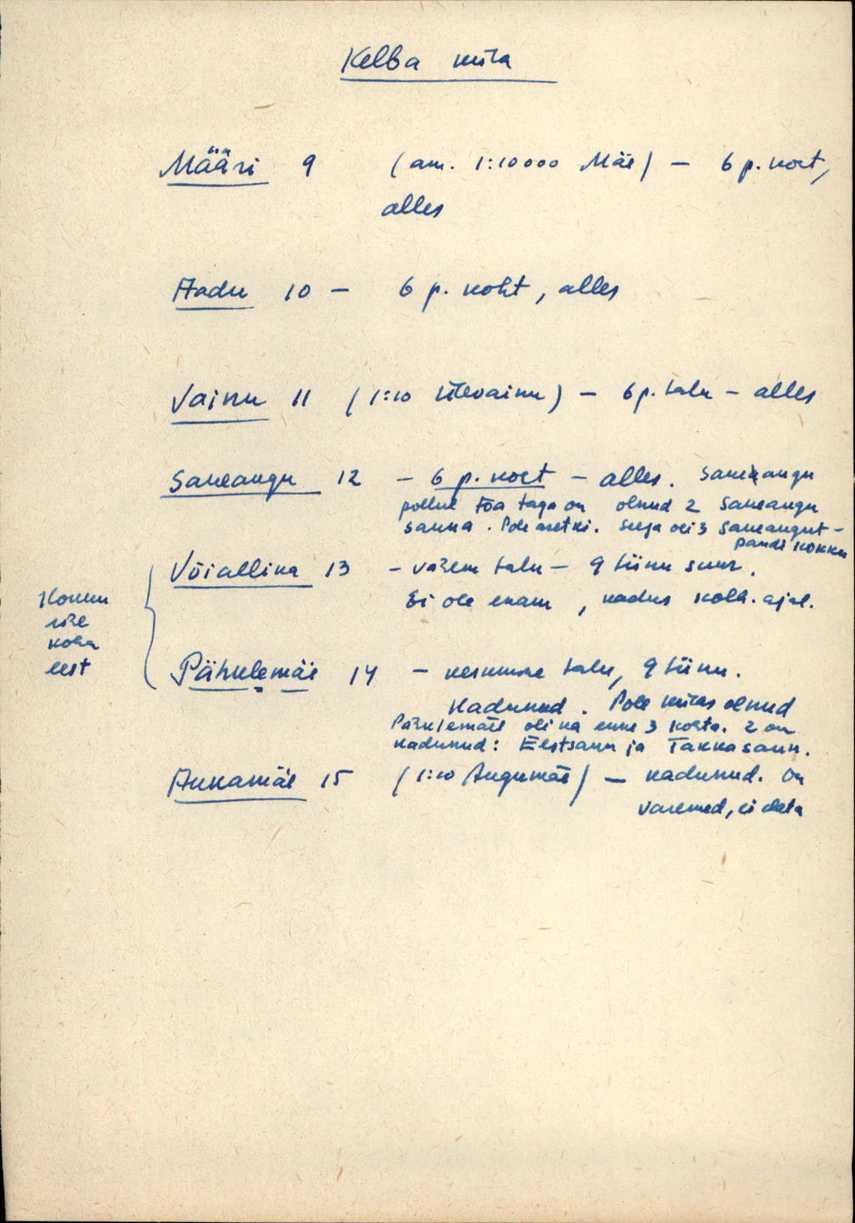 Kelba küla
Määri 9 (am. 1:10000 Mäe) - 6 p. koht,
alles
Aadu 10 - 6 p. koht, alles
Vainu 11 (1:10 Ülevainu) - 6 p. talu - alles
Saueaugu 12 - 6 p. koht - alles. Saueaugu
põllul Toa taga on olnud 2 Saueaugu
sauna. Pole asetki. Seega oli 3 Saueaugut -
pandi kokku
Võiallika 13 - vähem talu - 9 tiinu suur.
Ei ole enam, kadus kolh. ajal.
Komm
ühe
koha
eest
Pähklemäe 14 - keskmine talu, 9 tiinu.
Kadunud. Pole külas olnud
Pähklemäel oli ka enne 3 kohta. 2 on
kadunud: Eestsaun ja Takkasaun.
Aukamäe 15 (1:10 Augumäe) - kadunud. On
varemed, ei elata